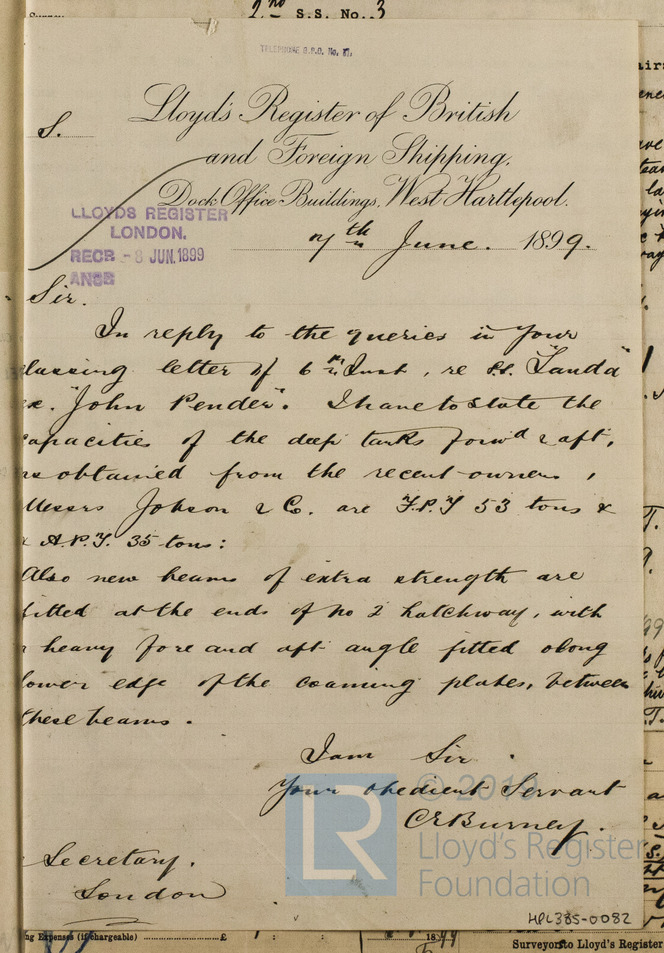 2nd S.S. No. 3
TELEPHONE G.P.O. No.
S.
Lloyd's Register of British
and Foreign Shipping,
Dock Office Buildings, West Hartlepool.
7th June. 1899.
LLOYDS REGISTER
LONDON.
RECR - 8 JUN. 1899
ANSR
Sir.
In reply to the queries in your
classing letter of 6th Inst, re s.s. "Landa"
ex. "John Pender". I have to state the
capacities of the deep tanks forwd & aft,
as obtained from the recent owners,
Messrs Jobson & C. are F.P.T 53 tons &
& A.P.T. 35 tons:
Also new beams of extra strength are
fitted at the ends of No 2 hatchway, with
a heavy fore and aft angle fitted along
lower edge of the coaming plates, between
these beams.
I am Sir.
Your obedient Servant
CEBurney.
Secretary.
London
© 2019
LR
Lloyd's Register
Foundation
HPL385-0082
ng Expenses (if chargeable) £ : : 1899
Surveyors to Lloyd's Register